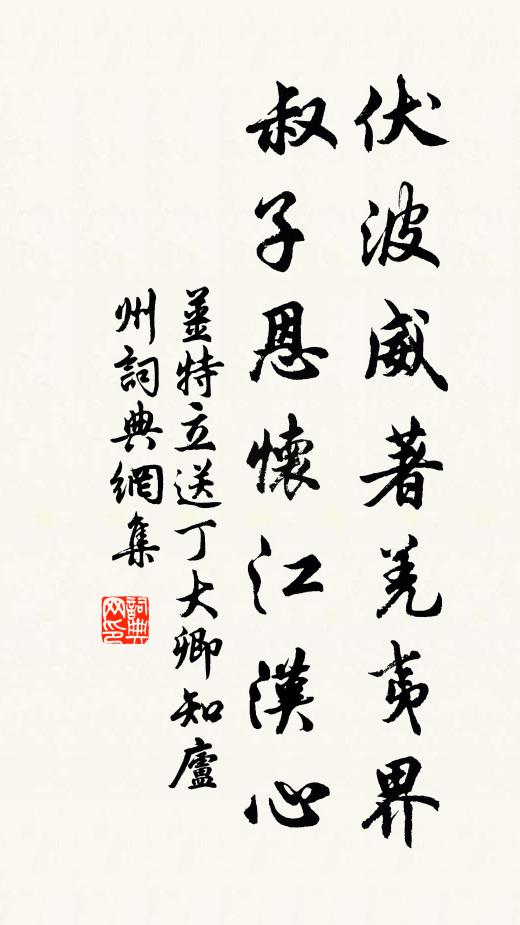 伏波威著羌夷界
叔子恩懷江漢心
薑特立送丁大卿知廬
州詞典網集
詞典网印